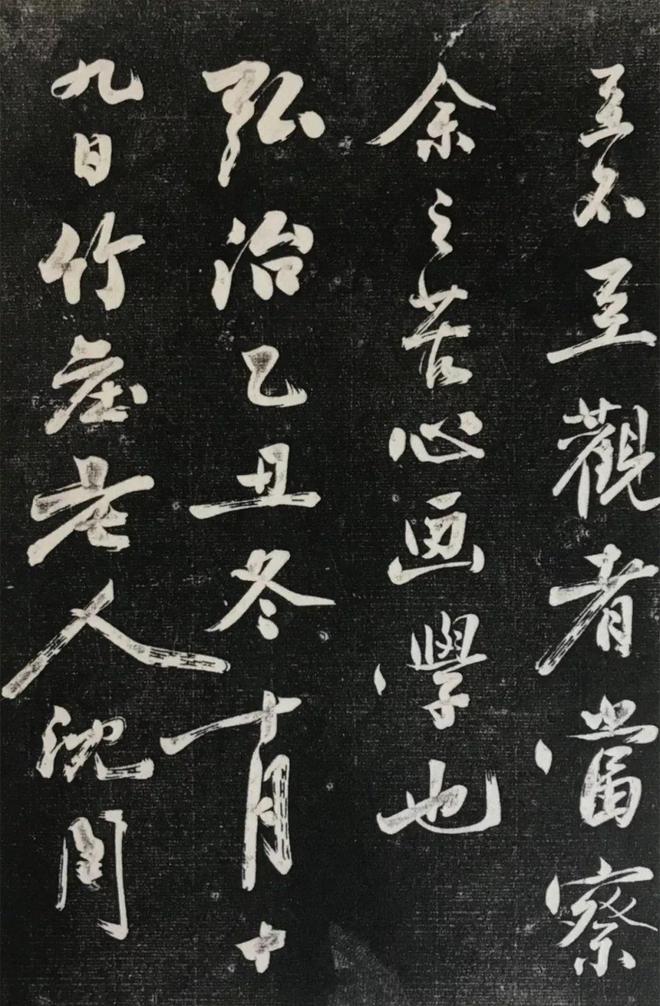 至不至觀者當察
余之苦心画學也
弘治乙丑冬十月十
九日竹庄老人沈周